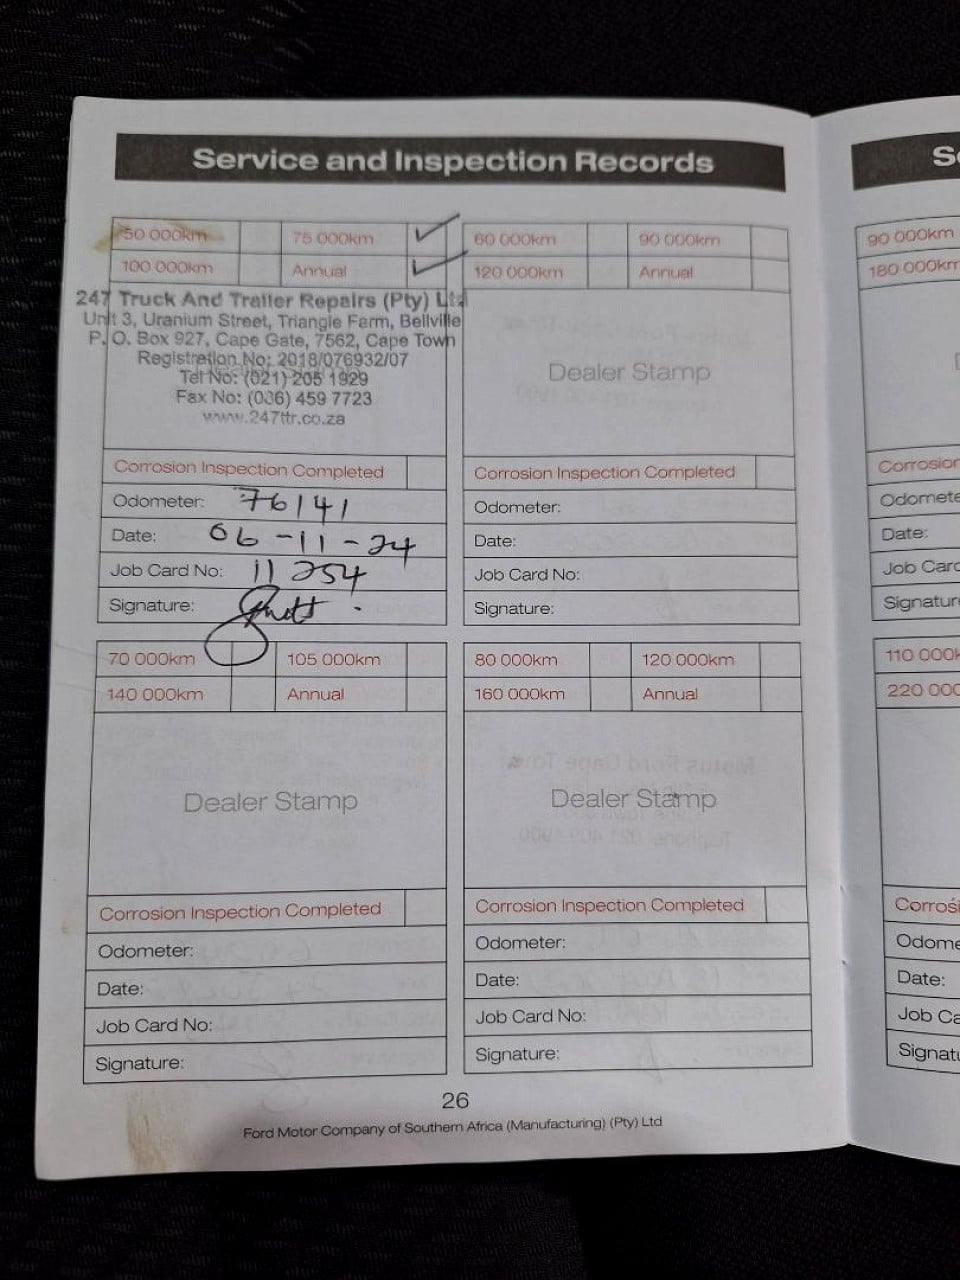 Service and Inspection Records
50 000km 75 000km
100 000km Annual
247 Truck And Trailer Repairs (Pty) Ltd
Unit 3, Uranium Street, Triangle Farm, Bellville
P.O. Box 927, Cape Gate, 7562, Cape Town
Registration No: 2018/076932/07
Tel No: (021) 205 1929
Fax No: (086) 459 7723
www.247ttr.co.za
Corrosion Inspection Completed
Odometer: 76141
Date: 06-11-24
Job Card No: 11254
Signature:
60 000km 90 000km
120 000km Annual
Dealer Stamp
Corrosion Inspection Completed
Odometer:
Date:
Job Card No:
Signature:
70 000km 105 000km
140 000km Annual
Dealer Stamp
Corrosion Inspection Completed
Odometer:
Date:
Job Card No:
Signature:
80 000km 120 000km
160 000km Annual
Dealer Stamp
Corrosion Inspection Completed
Odometer:
Date:
Job Card No:
Signature:
26
Ford Motor Company of Southern Africa (Manufacturing) (Pty) Ltd
90 000km
180 000km
Date:
Date: